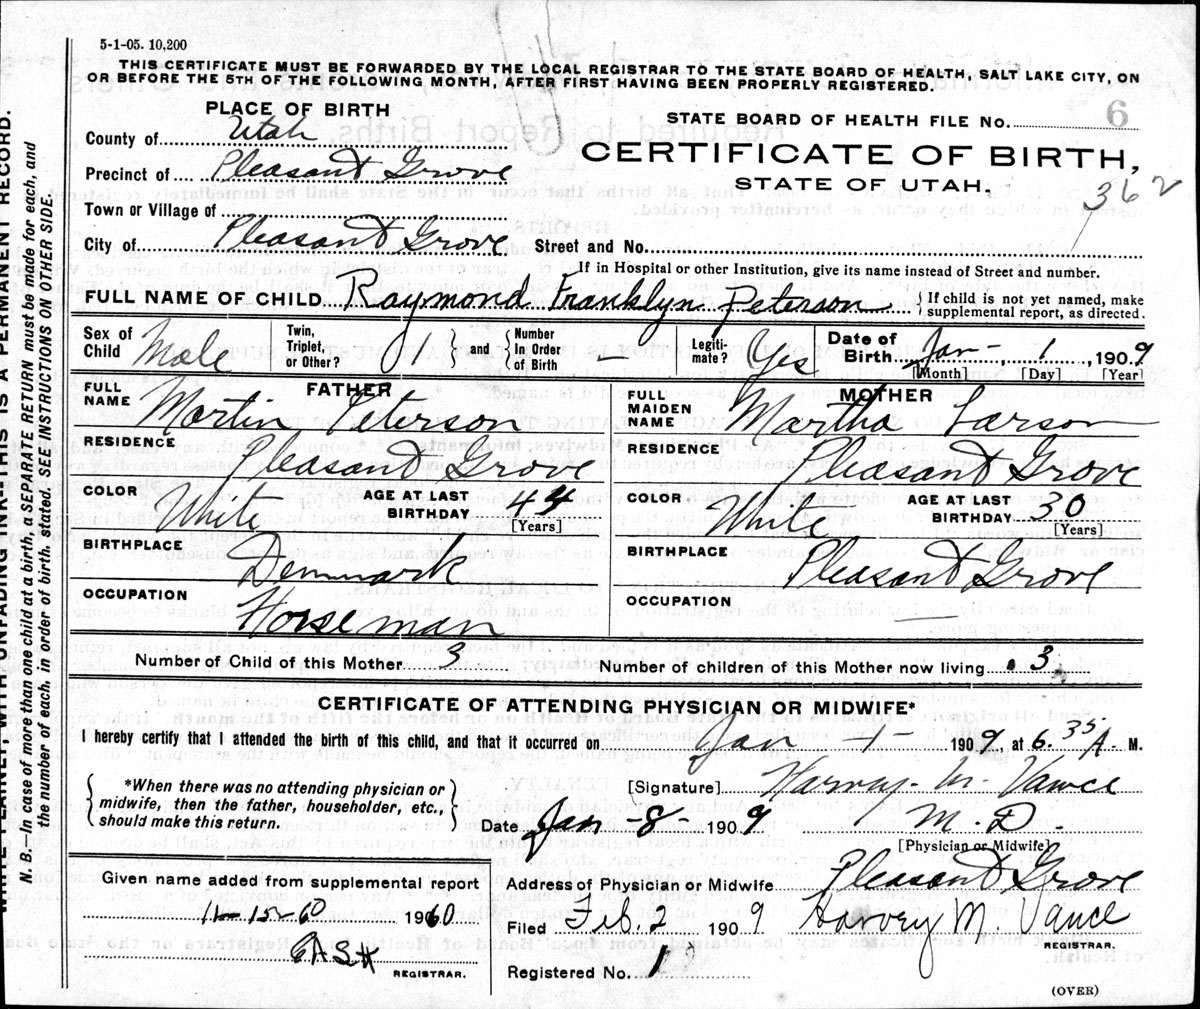 5-1-05. 10,200
THIS CERTIFICATE MUST BE FORWARDED BY THE LOCAL REGISTRAR TO THE STATE BOARD OF HEALTH, SALT LAKE CITY, ON
OR BEFORE THE 5TH OF THE FOLLOWING MONTH, AFTER FIRST HAVING BEEN PROPERLY REGISTERED.
PLACE OF BIRTH
STATE BOARD OF HEALTH FILE No. 6
County of Utah
CERTIFICATE OF BIRTH,
STATE OF UTAH.
362
Precinct of Pleasant Grove
Town or Village of
City of Pleasant Grove Street and No.
If in Hospital or other Institution, give its name instead of Street and number.
FULL NAME OF CHILD Raymond Franklyn Peterson { If child is not yet named, make supplemental report, as directed.
Sex of Child Male Twin, Triplet, or Other? 1 { and } Number in Order of Birth — Legiti-mate? Yes Date of Birth Jan - 1, 1909
[Month] [Day] [Year]
FATHER
FULL NAME Martin Peterson
RESIDENCE Pleasant Grove
COLOR White AGE AT LAST BIRTHDAY 44 [Years]
BIRTHPLACE Denmark
OCCUPATION Horseman
MOTHER
FULL MAIDEN NAME Martha Larson
RESIDENCE Pleasant Grove
COLOR White AGE AT LAST BIRTHDAY 30 [Years]
BIRTHPLACE Pleasant Grove
OCCUPATION —
Number of Child of this Mother 3 Number of children of this Mother now living 3
CERTIFICATE OF ATTENDING PHYSICIAN OR MIDWIFE*
I hereby certify that I attended the birth of this child, and that it occurred on Jan - 1 - 1909, at 6.35 A. M.
{ *When there was no attending physician or midwife, then the father, householder, etc., should make this return. }
[Signature] Harvey M. Vance
Date Jan - 8 - 1909 M. D.
[Physician or Midwife]
Address of Physician or Midwife Pleasant Grove
Filed Feb. 2 1909 Harvey M. Vance
REGISTRAR.
Registered No. 1
Given name added from supplemental report
11-15-60 19060
REGISTRAR.
(OVER)
WITH UNFADING INK—THIS IS A PERMANENT RECORD.
N. B.—In case of more than one child at a birth, a SEPARATE RETURN must be made for each, and
the number of each, in order of birth, stated. SEE INSTRUCTIONS ON OTHER SIDE.